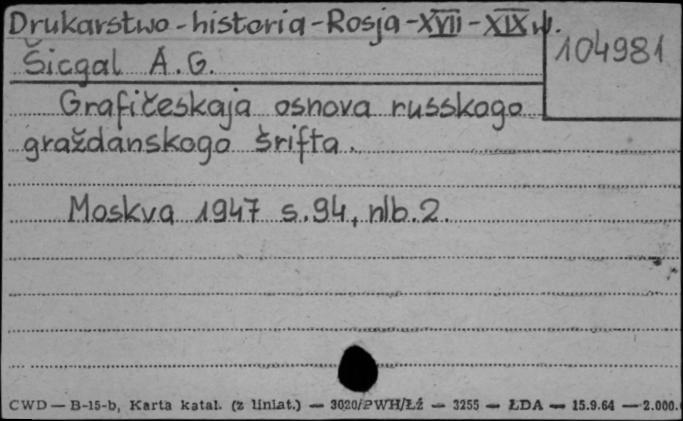 Drukarstwo - historia - Rosja - XVII - XIX w.
104981
Šicgal A.G.
Grafičeskaja osnova russkogo
graždanskogo šrifta.
Moskva 1947 s.94, nlb.2.
CWD — B-15-b, Karta katal. (z liniat.) — 3020/PWH/Łź — 3255 — ŁDA — 15.9.64 — 2.000.